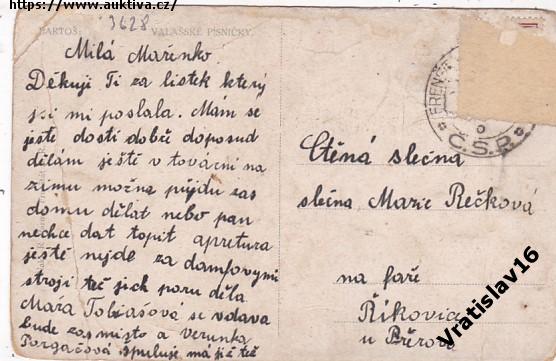 https://www.auktiva.cz/
3628
BARTOŠ: VALAŠSKÉ PÍSNIČKY.
Milá Mařenko.
Děkuji Ti za lístek který
jsi mi poslala. Mám se
ještě dosti dobře doposud
dělám ještě v tovární na
zimu možna půjdu zas
domu dělat nebo pan
nechce dat topit apretura
ještě nejde za damfovymi
stroji teč jich poru děla
Mařa Tobiašová se vdava
bude zas misto a Verunka
má již teč
Č.S.R.
Ctěná slečna
slečna Marie Rečková
na faře
Říkovice
u Přerova
Vratislav16